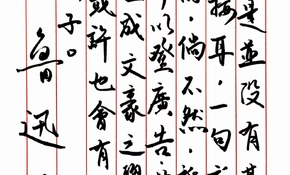 是並没有
接耳,一句
倘不然,
以登廣告,
成文豪之
或許也會有
子。
魯迅